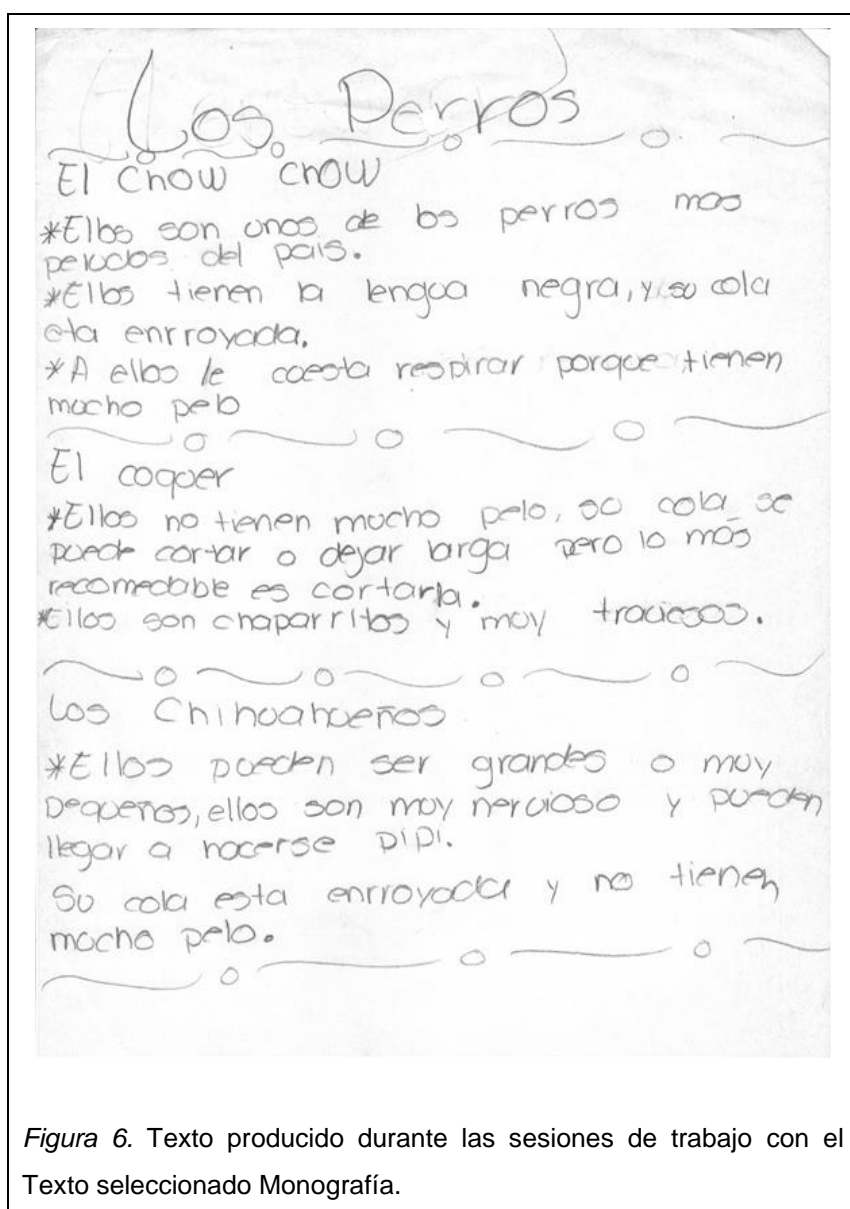 Los Perros
El Chow chow
*Ellos son unos de los perros mas
peludos del pais.
*Ellos tienen la lengua negra, y su cola
eta enrroyada.
*A ellos le cuesta respirar porque tienen
mucho pelo
El coquer
*Ellos no tienen mucho pelo, su cola se
puede cortar o dejar larga pero lo más
recomedable es cortarla.
*Ellos son chaparritos y muy traviesos.
Los Chihuahueños
*Ellos pueden ser grandes o muy
pequeños, ellos son muy nervioso y pueden
llegar a hacerse pipi.
Su cola esta enrroyada y no tienen
mucho pelo.
Figura 6. Texto producido durante las sesiones de trabajo con el
Texto seleccionado Monografía.